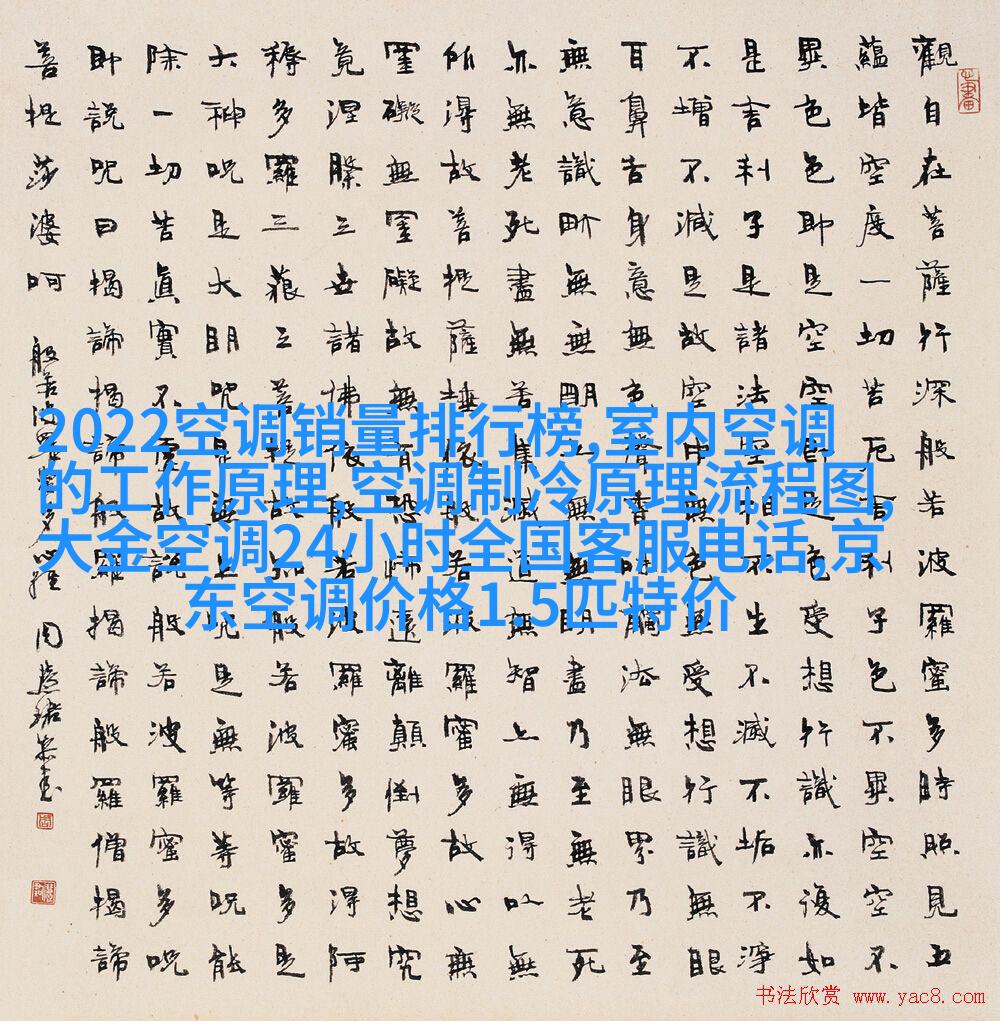 觀自在菩薩行深般若波羅蜜多時照見五
蘊皆空度一切苦厄舍利子色不異空空不
異色色即是空空即是色受想行識亦復如
是舍利子是諸法空相不生不滅不垢不淨
不增不減是故空中無色無受想行識無眼
耳鼻舌身意無色聲香味觸法無眼界乃至
無意識界無無明亦無無明盡乃至無老死
亦無老死盡無苦集滅道無智亦無得以無
所得故菩提薩埵依般若波羅蜜多故心無
罣礙無罣礙故無有恐怖遠離顛倒夢想究
竟涅槃三世諸佛依般若波羅蜜多故得阿
耨多羅三藐三菩提故知般若波羅蜜多是
大神咒是大明咒是無上咒是無等等咒能
除一切苦眞實不虛故說般若波羅蜜多咒
即說咒曰揭諦揭諦般羅揭諦般羅僧揭諦
菩提莎婆訶
般若波羅蜜多心經 周慧珺恭書
2022空调销量排行榜,室内空调
的工作原理,空调制冷原理流程图,
大金空调24小时全国客服电话,京
东空调价格1.5匹特价
书法欣赏 www.yac8.com